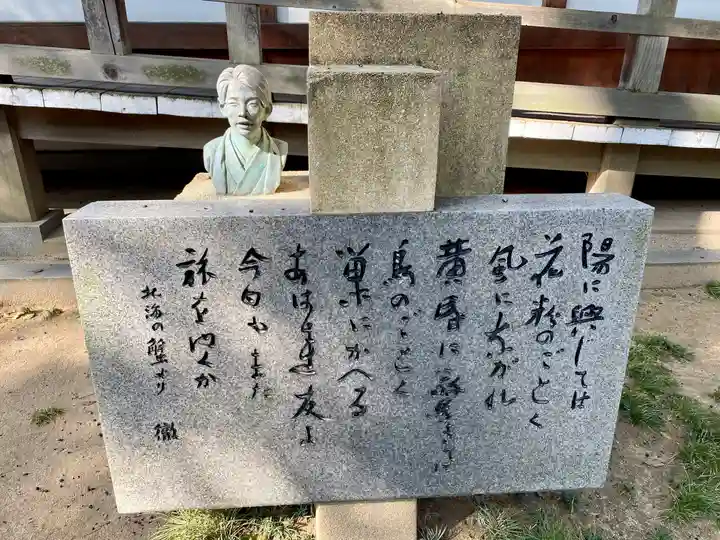 陽に興じては
花粉のごとく
風にながれ
黄昏に
鳥のごとく
巣にかへる
あはれ友よ
今日もまた
旅をゆくか
北海の蟹より 徹